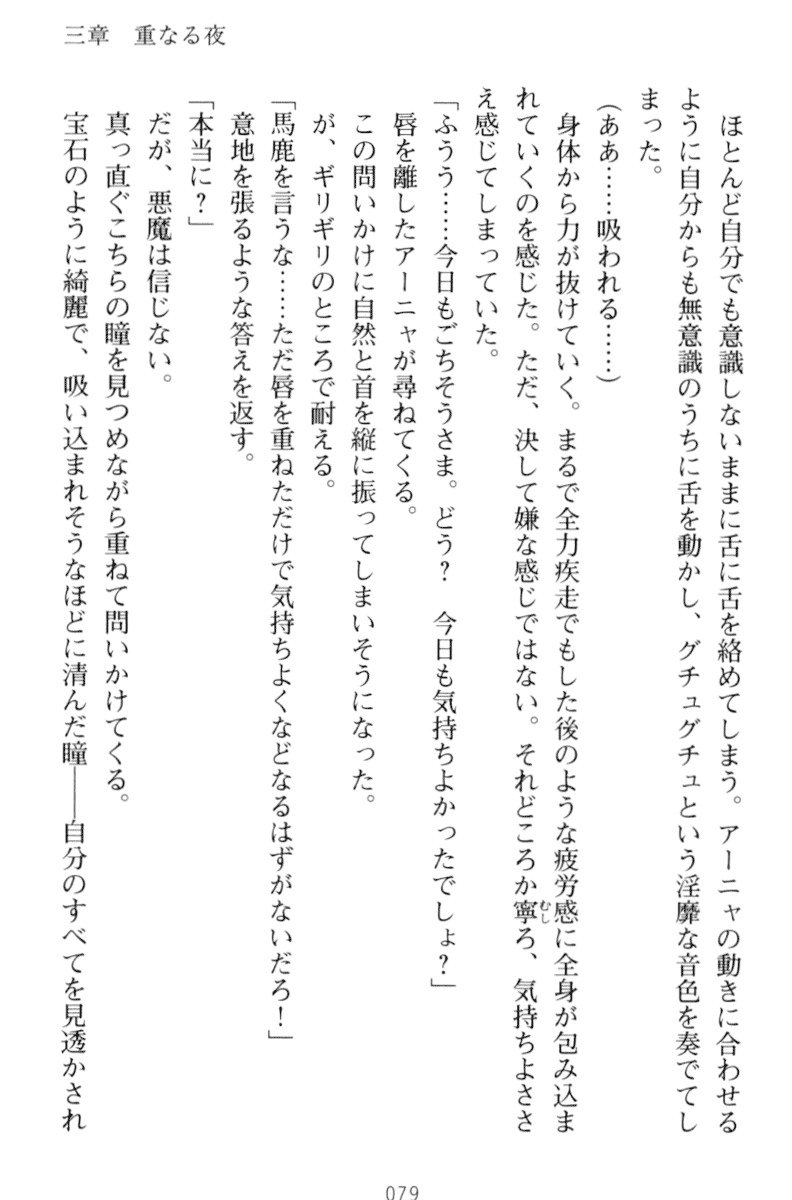 三章　重なる夜
ほとんど自分でも意識しないままに舌に舌を絡めてしまう。アーニャの動きに合わせる
ように自分からも無意識のうちに舌を動かし、グチュグチュという淫靡な音色を奏でてし
まった。
(ああ……吸われる……)
身体から力が抜けていく。まるで全力疾走でもした後のような疲労感に全身が包み込ま
れていくのを感じた。ただ、決して嫌な感じではない。それどころか寧むしろ、気持ちよささ
え感じてしまっていた。
「ふうう……今日もごちそうさま。どう？　今日も気持ちよかったでしょ？」
唇を離したアーニャが尋ねてくる。
この問いかけに自然と首を縦に振ってしまいそうになった。
が、ギリギリのところで耐える。
「馬鹿を言うな……ただ唇を重ねただけで気持ちよくなどなるはずがないだろ！」
意地を張るような答えを返す。
「本当に？」
だが、悪魔は信じない。
真っ直ぐこちらの瞳を見つめながら重ねて問いかけてくる。
宝石のように綺麗で、吸い込まれそうなほどに清んだ瞳――自分のすべてを見透かされ
079